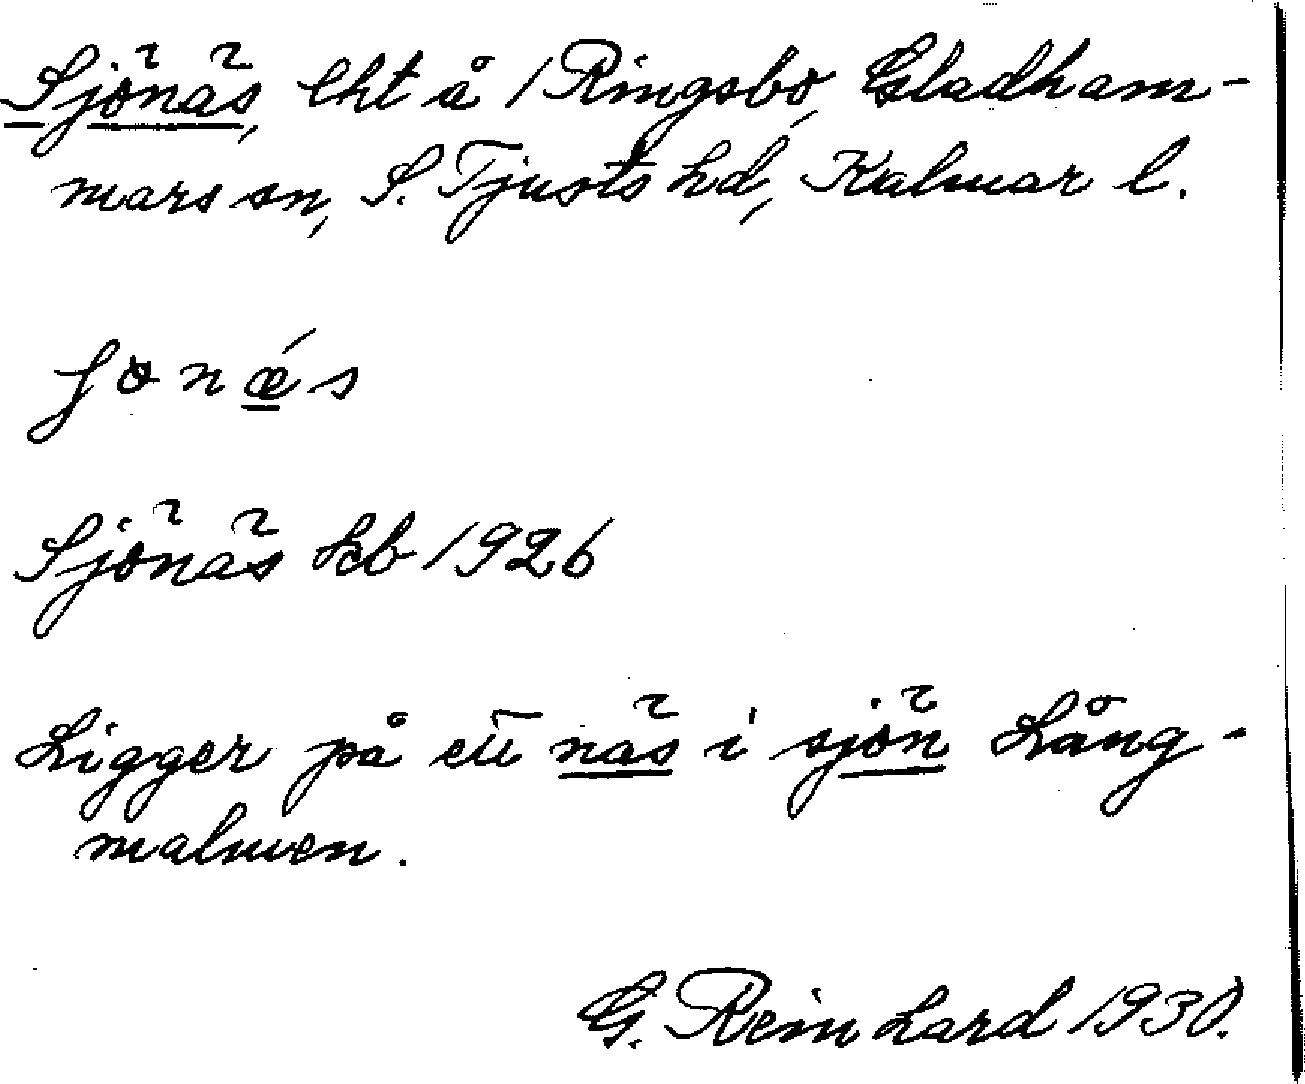 Sjönäs, lht å 1 Ringsbo, Gladham-
mars sn, S. Tjusts hd, Kalmar l.
ʃonǽs
Sjönäs Jeb 1926
Ligger på ett näs i sjön Lång-
malmen.
G. Reinhard 1930.